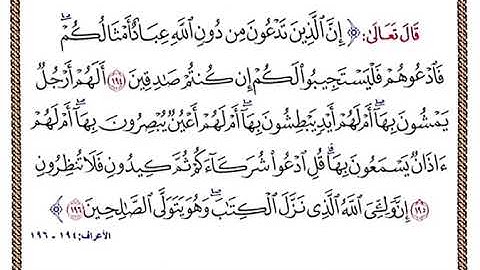 قَالَ تَعَالَىٰ: ﴿ إِنَّ ٱلَّذِينَ تَدْعُونَ مِن دُونِ ٱللَّهِ عِبَادٌ أَمْثَالُكُمْ ۖ
فَٱدْعُوهُمْ فَلْيَسْتَجِيبُوا۟ لَكُمْ إِن كُنتُمْ صَٰدِقِينَ ١٩٤ أَلَهُمْ أَرْجُلٌ
يَمْشُونَ بِهَآ ۖ أَمْ لَهُمْ أَيْدٍ يَبْطِشُونَ بِهَآ ۖ أَمْ لَهُمْ أَعْيُنٌ يُبْصِرُونَ بِهَآ ۖ أَمْ لَهُمْ
ءَاذَانٌ يَسْمَعُونَ بِهَا ۗ قُلِ ٱدْعُوا۟ شُرَكَآءَكُمْ ثُمَّ كِيدُونِ فَلَا تُنظِرُونِ
١٩٥ إِنَّ وَلِـِّۧىَ ٱللَّهُ ٱلَّذِى نَزَّلَ ٱلْكِتَٰبَ ۖ وَهُوَ يَتَوَلَّى ٱلصَّٰلِحِينَ ١٩٦ ﴾
الأعراف: ١٩٤ - ١٩٦